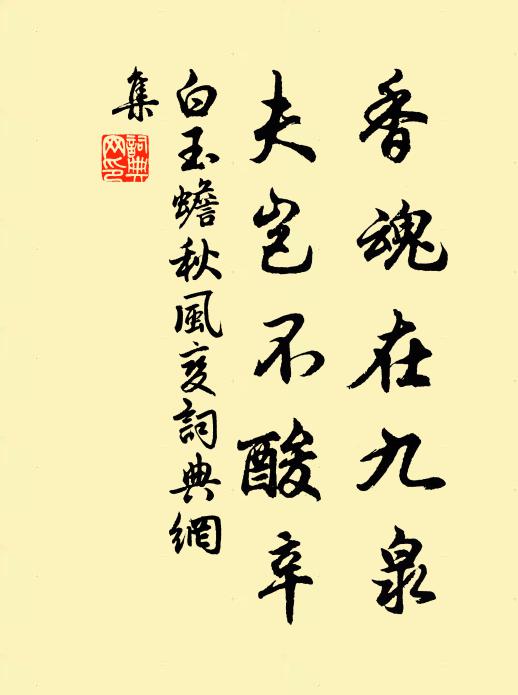 香魂在九泉
夫岂不酸辛
白玉蟾秋風变詞典網
集
詞典網印